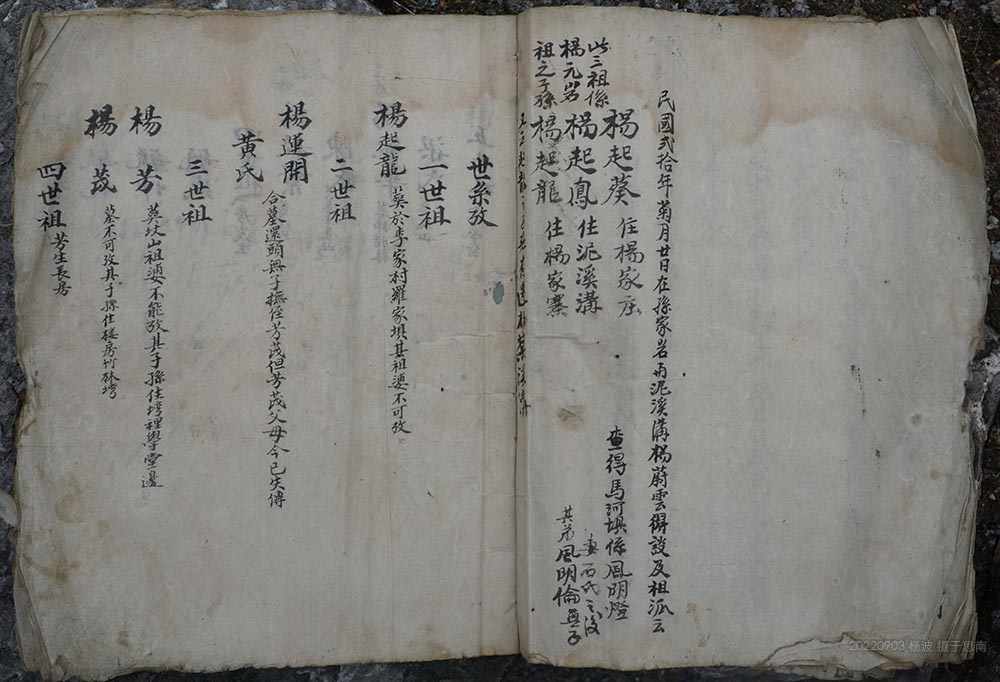 民國弍拾年菊月廿日在孫家岩與泥溪溝楊蔚雲得談及祖派云
此三祖係
楊元岩
祖之子孫
楊起葵 住楊家庄
楊起鳳 住泥溪溝
楊起龍 住楊家寨
查得馬河埧係鳳明燈
妻石氏之後
其弟鳳明倫無子
世系攷
一世祖
楊起龍 葬於李家村羅家埧其祖婆不可攷
二世祖
楊運開
黃氏 合墓還頭無子撫侄芳茂但芳茂父母今已失傳
三世祖
楊芳 葬坟山祖婆不能攷其子孫住塆裡學堂邊
楊茂 墓不可攷其子孫住楼房竹林塆
四世祖 芳生長房
20220903 杨波 摄于思南